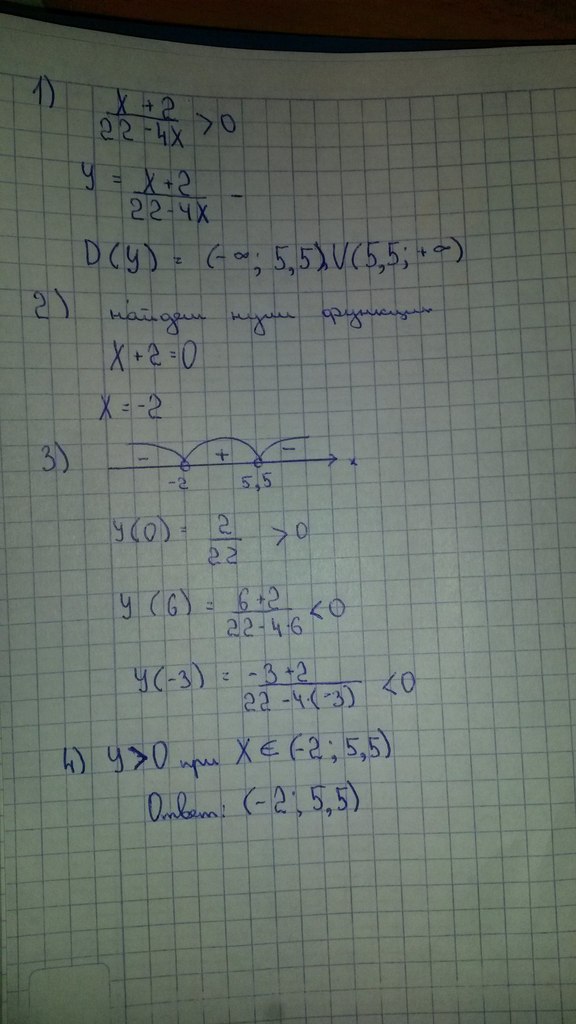 1) x + 2 / 22 - 4x > 0
y = x + 2 / 22 - 4x -
D(y) = (-∞; 5,5) V (5,5; +∞)
2) найдем нули функции
x + 2 = 0
x = -2
3) - + - x
-2 5,5
y(0) = 2 / 22 > 0
y(6) = 6 + 2 / 22 - 4·6 < 0
y(-3) = -3 + 2 / 22 - 4·(-3) < 0
4) y > 0 при x ∈ (-2; 5,5)
Ответ: (-2; 5,5)